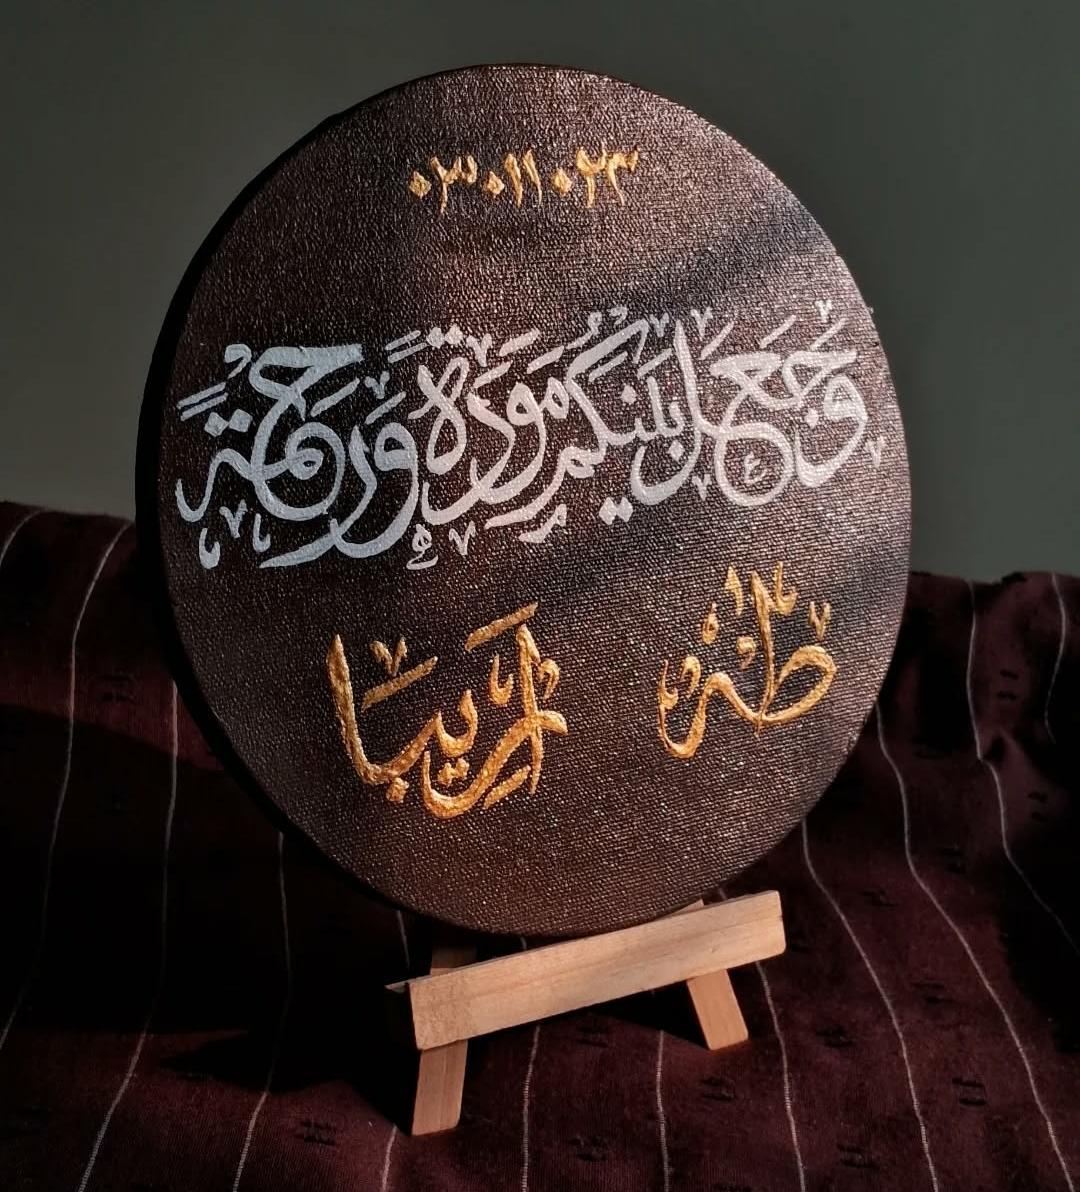 ٠٣.١١.٢٣
وَجَعَلَ بَيْنَكُمْ مَوَدَّةً وَرَحْمَةً
طٰهٰ اَرِيبَا